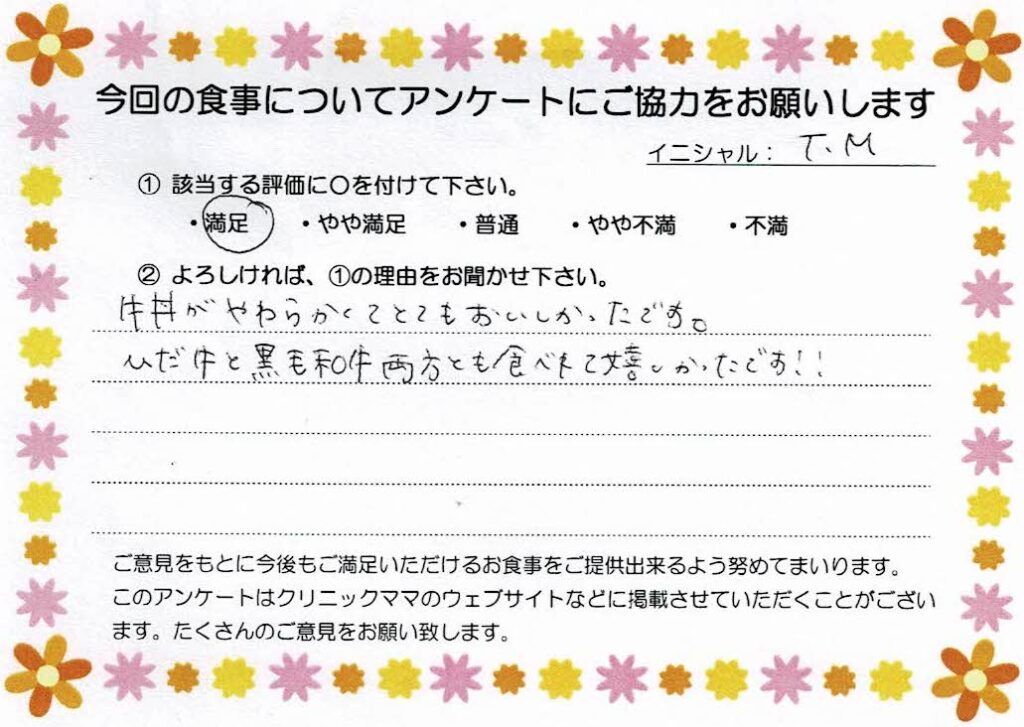 今回の食事についてアンケートにご協力をお願いします
イニシャル： T.M
① 該当する評価に〇を付けて下さい。
・満足 ・やや満足 ・普通 ・やや不満 ・不満
② よろしければ、①の理由をお聞かせ下さい。
牛丼がやわらかくてとてもおいしかったです。
ひだ牛と黒毛和牛両方とも食べれて嬉しかったです!!
ご意見をもとに今後もご満足いただけるお食事をご提供出来るよう努めてまいります。
このアンケートはクリニックママのウェブサイトなどに掲載させていただくことがござい
ます。たくさんのご意見をお願い致します。